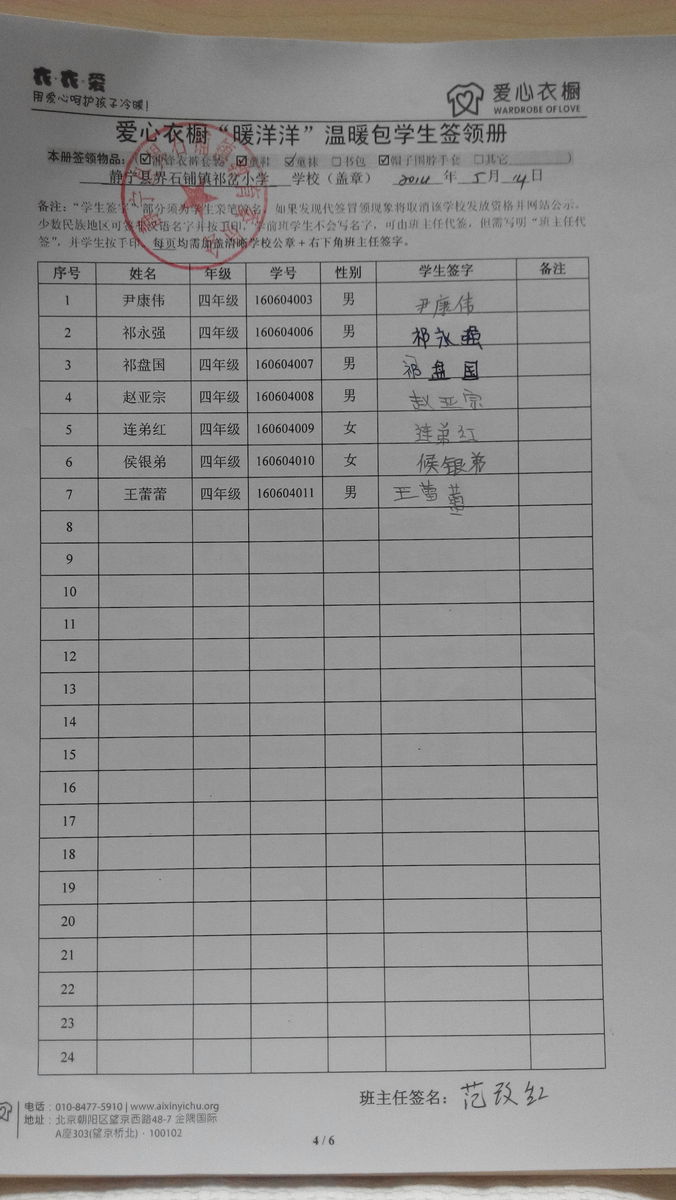 衣·衣·爱
用爱心呵护孩子冷暖!
爱心衣橱
WARDROBE OF LOVE
爱心衣橱“暖洋洋”温暖包学生签领册
本册签领物品: ☑冲锋衣裤套装 ☑童鞋 ☑童袜 □书包 ☑帽子围脖手套 □其它 )
静宁县界石铺镇祁岔小学 学校(盖章) 2014 年 5 月 14 日
备注:“学生签字”部分须为学生亲笔签名,如果发现代签冒领现象将取消该学校发放资格并网站公示。
少数民族地区可签本汉语名字并按手印,学前班学生不会写名字,可由班主任代签,但需写明“班主任代
签”,并学生按手印。每页均需加盖清晰学校公章+右下角班主任签字。
序号 姓名 年级 学号 性别 学生签字 备注
1 尹康伟 四年级 160604003 男 尹康伟
2 祁永强 四年级 160604006 男 祁永强
3 祁盘国 四年级 160604007 男 祁盘国
4 赵亚宗 四年级 160604008 男 赵亚宗
5 连弟红 四年级 160604009 女 连弟红
6 侯银弟 四年级 160604010 女 候银弟
7 王蕾蕾 四年级 160604011 男 王蕾蕾
8
9
10
11
12
13
14
15
16
17
18
19
20
21
22
23
24
班主任签名: 范改红
电话:010-8477-5910 | www.aixinyichu.org
地址:北京朝阳区望京西路48-7 金隅国际
A座303(望京桥北)·100102
4 / 6